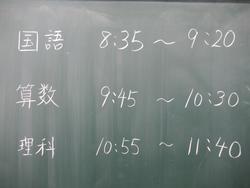 国語 8:35 ～ 9:20
算数 9:45 ～ 10:30
理科 10:55 ～ 11:40